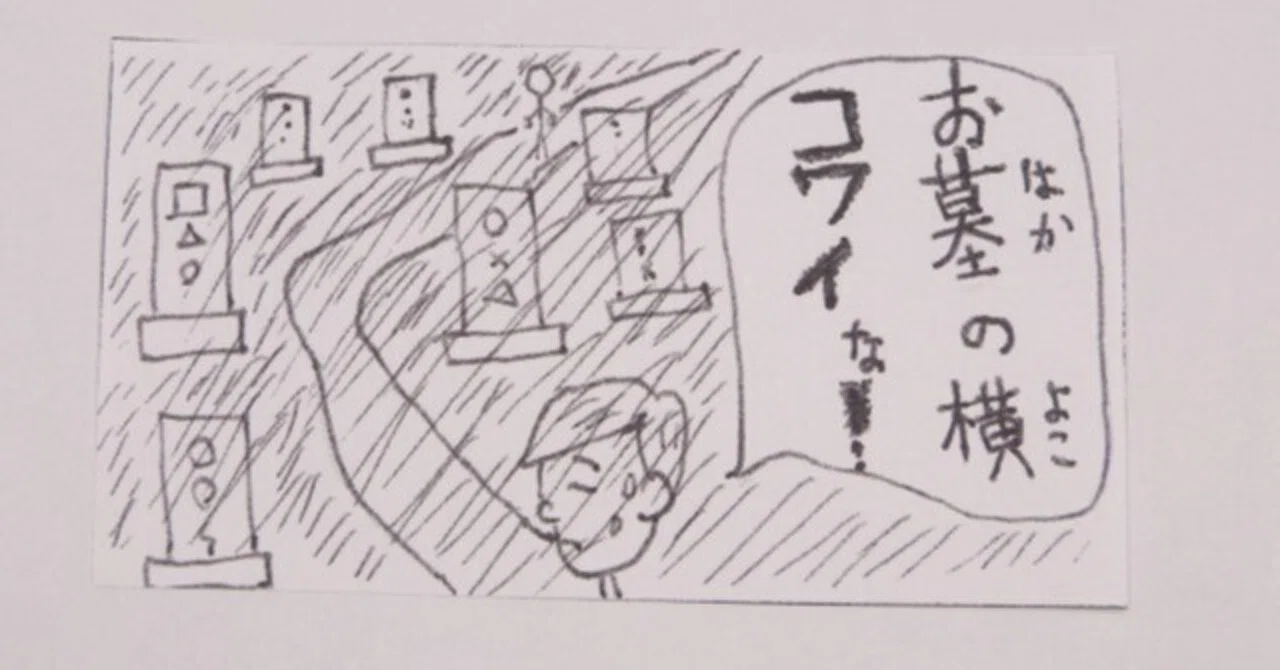 お墓の横
はか
よこ
コワイな!…